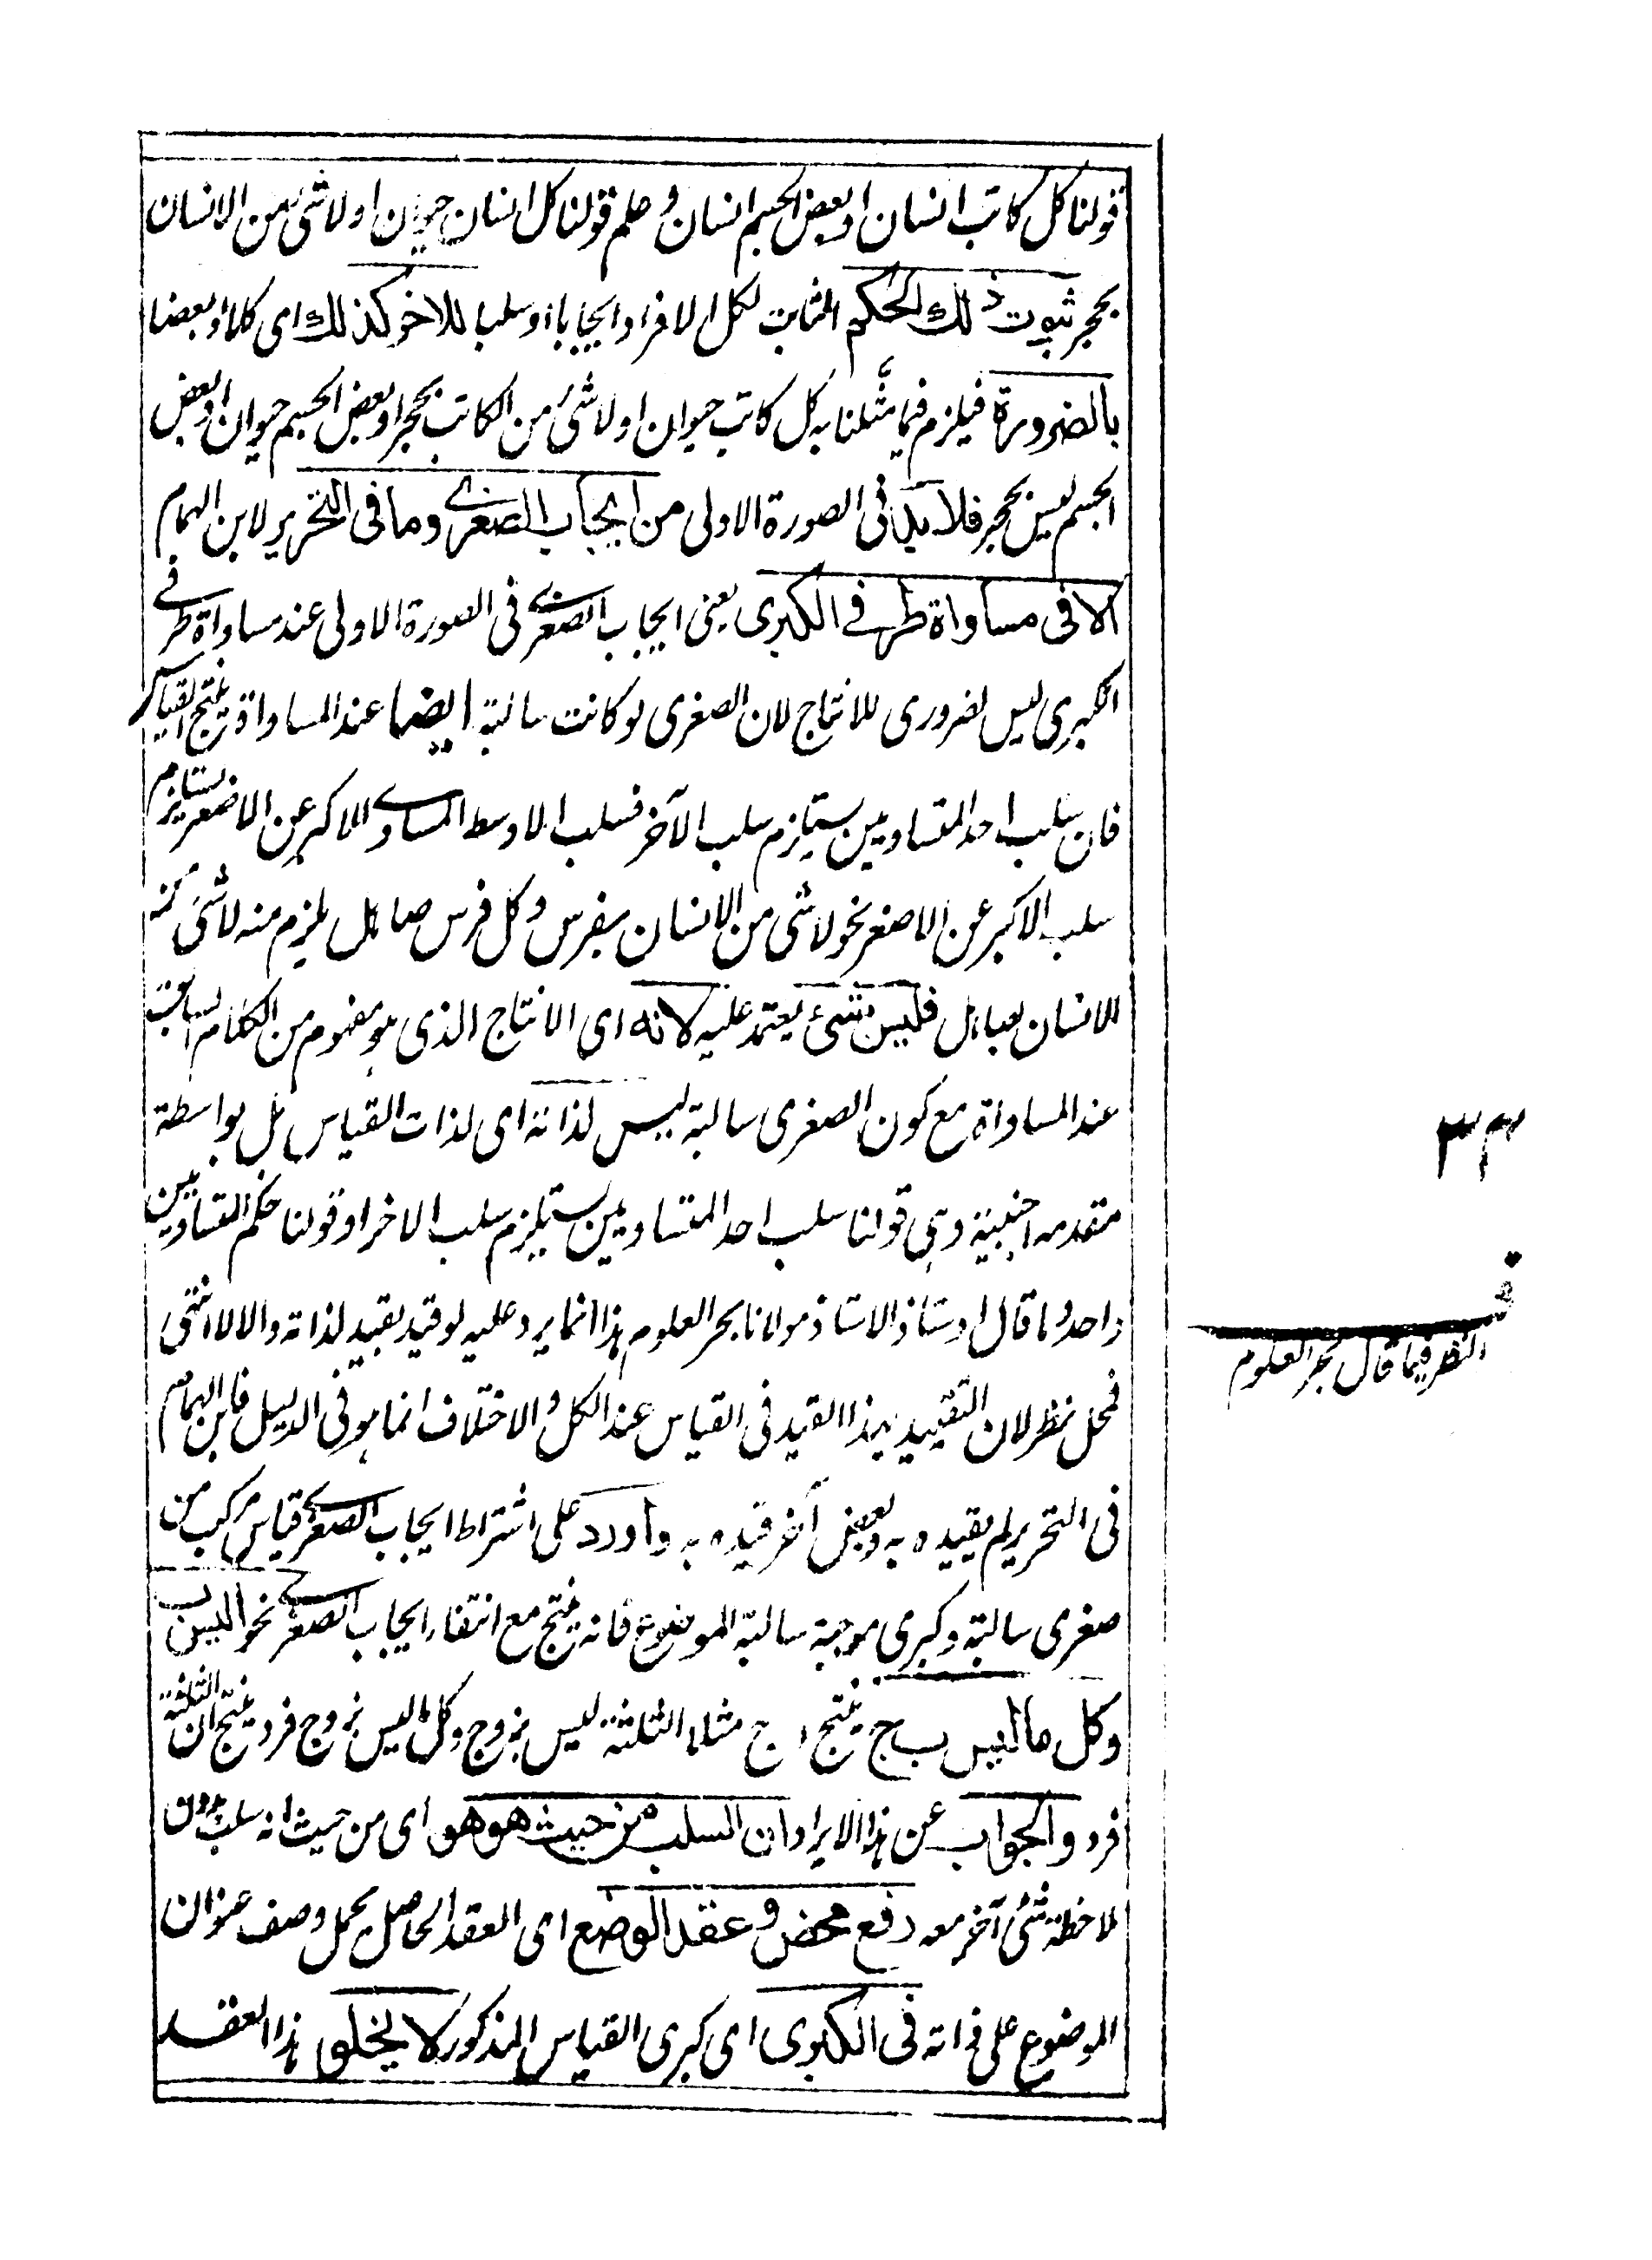 قولنا كل كاتب انسان او بعض الجسم انسان وعلم قولنا كل انسان حيوان او لا شئ من الانسان
بحجر ثبوت ذلك الحكم الثابت لكل الافراد ايجابا او سلبا للاخر كذلك اى كلا او بعضا
بالضرورة فيلزم فيما مثلنا به كل كاتب حيوان او لا شئ من الكاتب بحجر او بعض الجسم حيوان او بعض
الجسم ليس بحجر فلا بد فى الصورة الاولى من ايجاب الصغرى وما فى التحرير لابن الهمام
الا فى مساواة طرفى الكبرى يعنى ايجاب الصغرى فى الصورة الاولى عند مساواة طرفى
الكبرى ليس بضرورى للانتاج لان الصغرى لو كانت سالبة ايضا عند المساواة ينتج القياس
فان سلب احد المتساويين يستلزم سلب الآخر فسلب الاوسط المساوى للاكبر عن الاصغر يستلزم
سلب الاكبر عن الاصغر نحو لا شئ من الانسان بفرس وكل فرس صاهل يلزم منه لا شئ من
الانسان بصاهل فليس بشئ يعتمد عليه لانه اى الانتاج الذى هو مفهوم من الكلام السابق
عند المساواة مع كون الصغرى سالبة ليس لذاته اى لذات القياس بل بواسطة
مقدمة اجنبية وهى قولنا سلب احد المتساويين يستلزم سلب الاخر او قولنا حكم المتساويين
واحد وما قال اوستاذ الاستاذ مولانا بحر العلوم هذا انما يرد عليه لو قيد بقيد لذاته والا لا انتهى
فمحل نظر لان التقييد بهذا القيد فى القياس عند الكل والاختلاف انما هو فى الدليل فابن الهمام
فى التحرير لم يقيده به وبعض آخر قيده به واورد على اشتراط ايجاب الصغرى قياس مركب من
صغرى سالبة وكبرى موجبة سالبة الموضوع فانه ينتج مع انتفاء ايجاب الصغرى نحو ا ليس ب
وكل ما ليس ب ج ينتج ا ج مثلا الثلثة ليس بزوج وكل ما ليس بزوج فرد ينتج ان الثلثة
فرد والجواب عن هذا الايراد ان السلب من حيث هو هو اى من حيث انه سلب بدون
ملاحظة شئ آخر معه رفع محض وعقد الوضع اى العقد الحاصل بحمل وصف عنوان
الموضوع على ذاته فى الكبرى اى كبرى القياس المذكور لا يخلو هذا العقد
النظر فيما قال بحر العلوم